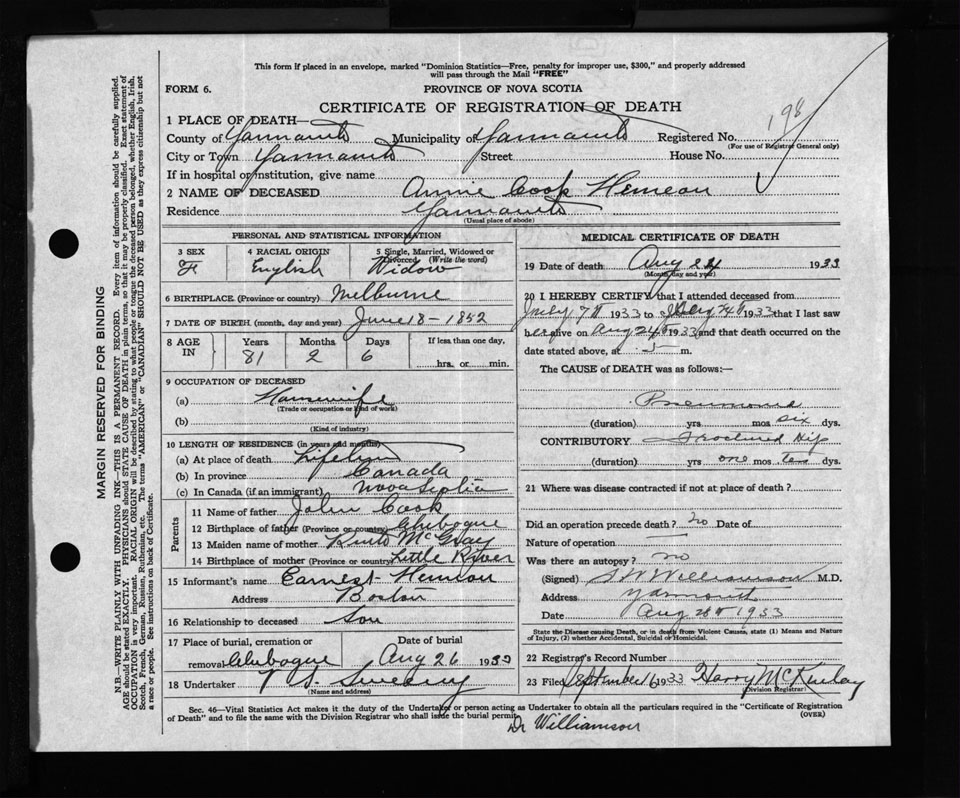 This form if placed in an envelope, marked "Dominion Statistics—Free, penalty for improper use, $300," and properly addressed
will pass through the Mail "FREE"
FORM 6.
PROVINCE OF NOVA SCOTIA
CERTIFICATE OF REGISTRATION OF DEATH
198
1 PLACE OF DEATH—
County of Yarmouth Municipality of Yarmouth Registered No.
(For use of Registrar General only)
City or Town Yarmouth Street House No.
If in hospital or institution, give name
2 NAME OF DECEASED Annie Cook Hemeon
Residence Yarmouth
(Usual place of abode)
MARGIN RESERVED FOR BINDING
N.B.—WRITE PLAINLY WITH UNFADING INK—THIS IS A PERMANENT RECORD. Every item of information should be carefully supplied.
AGE should be stated EXACTLY. PHYSICIANS should STATE CAUSE OF DEATH in plain terms, so that it may be properly classified. Exact statement of
OCCUPATION is very important. RACIAL ORIGIN will be described by stating to what people or tongue the deceased person belonged, whether English, Irish,
Scotch, French, German, Russian, Ruthenian, etc. The terms "AMERICAN" or "CANADIAN" SHOULD NOT BE USED as they express citizenship but not
a race or people. See instructions on back of Certificate.
PERSONAL AND STATISTICAL INFORMATION
3 SEX
F
4 RACIAL ORIGIN
English
5 Single, Married, Widowed or
Divorced (Write the word)
Widow
6 BIRTHPLACE. (Province or country) Melburne
7 DATE OF BIRTH (month, day and year) June 18 - 1852
8 AGE IN
Years Months Days If less than one day,
81 2 6
hrs. or min.
9 OCCUPATION OF DECEASED
(a) Housewife
(Trade or occupation or kind of work)
(b)
(Kind of industry)
10 LENGTH OF RESIDENCE (in years and months)
(a) At place of death Lifetime
(b) In province Canada
(c) In Canada (if an immigrant) Nova Scotia
Parents
11 Name of father John Cook
12 Birthplace of father (Province or country) Chebogue
13 Maiden name of mother Ruth McGray
14 Birthplace of mother (Province or country) Little River
15 Informant's name Earnest Hemeon
Address Boston
16 Relationship to deceased Son
17 Place of burial, cremation or
removal Chebogue
Date of burial
Aug 26 1933
18 Undertaker V. S. Sweeny
(Name and address)
MEDICAL CERTIFICATE OF DEATH
19 Date of death Aug 24 1933
(Month, day and year)
20 I HEREBY CERTIFY that I attended deceased from
July 7th 1933 to Aug 24th 1933 that I last saw
her alive on Aug 24th 1933 and that death occurred on the
date stated above, at 5 m.
The CAUSE of DEATH was as follows:—
Pneumonia
(duration) yrs mos six dys.
CONTRIBUTORY Fractured Hip
(duration) yrs one mos ten dys.
21 Where was disease contracted if not at place of death?
Did an operation precede death? no Date of
Nature of operation
Was there an autopsy? no
(Signed) Williamson M.D.
Address Yarmouth
Date Aug 28th 1933
State the Disease causing Death, or in death from Violent Causes, state (1) Means and Nature
of Injury, (2) whether Accidental, Suicidal or Homicidal.
22 Registrar's Record Number
23 Filed September 6 1933 Harry McKinlay
Division Registrar
Sec. 46—Vital Statistics Act makes it the duty of the Undertaker or person acting as Undertaker to obtain all the particulars required in the "Certificate of Registration
of Death" and to file the same with the Division Registrar who shall issue the burial permit.
(OVER)
Dr Williamson